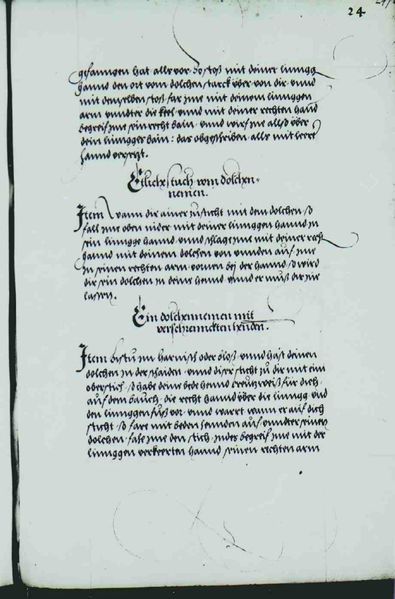 24
gefanngen hat alls vor. so stoß mit deiner lingg
hannd den ort vom dolchen starck über von dir. unnd
mit demselben stoß far jme mit deinem linggen
arm unndter die kel. unnd mit deiner rechten hand
begreif jme sein recht bain. unnd wirf jne allso über
dein linggen bain: das obgeschriben alls mit leerer
hannd
Etliche stuck vom dolchen
nemen.
Item wann dir ainer zusticht mit dem dolchen. so
fall jme oben nider mit deiner linggen hannd jn
sein lingge hannd. unnd schlag jme mit deiner rech
hannd mit deinem dolchen von unnden auf jme
jn seinen rechten arm vornen bej der hannd so wird
dir sein dolchen in deine hennd unnd er muß dir jne
lassen.
Ein dolchennemen mit
verschrennckten henden.
Item bistu jm harnisch oder ploß. unnd hast deinen
dolchen jn der schaiden. unnd diser sticht zu dir mit eim
oberstich. so habe deine bede hennd kreutzweiß für dich
auf dem bauch, die recht hannd über die lingg. und
den linggen fuß vor. unnd wart wann er auf dich
sticht. so fare mit beden hennden auf. unnder seinen
dolchen. fahe jme den stich. jndes begreif jme mit der
linggen verkeerten hannd seinen rechten arm